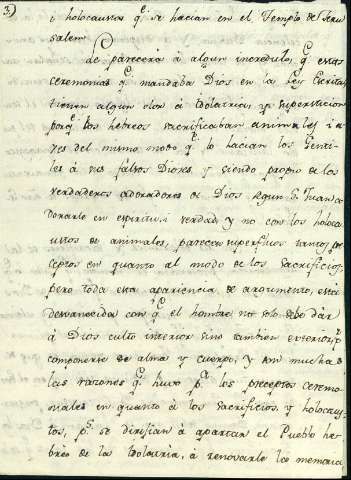 3.)
ó holocaustos q.e se hacian en el Templo de Jeru
salem.
Le parecerá á algun incredulo, q.e estas
ceremonias q.e mandaba Dios en la Ley Escrita
tienen algun olor á idolatria, y supersticion
porq.e los hebreos sacrificaban animales i a
ves del mismo modo q.e lo hacian los Genti
les á sus falsos Dioses, y siendo propio de los
verdaderos adoradores de Dios segun S. Juan a
dorarle en espiritu, i verdad y no con los holoca
ustos de animales, parecen superfluos tantos pre
ceptos en quanto al modo de los sacrificios,
pero toda esta apariencia de argumento, está
desvanecida con q.e el hombre no solo debe dár
á Dios culto interior sino tambien exterior, p.r
componerse de alma y cuerpo, y son muchas
las razones q.e huvo p.a los preceptos ceremo
niales en quanto á los sacrificios, y holocaus
tos, p.s se dirijian á apartar el Pueblo he
breo de la idolatria, á renovarle la memoria